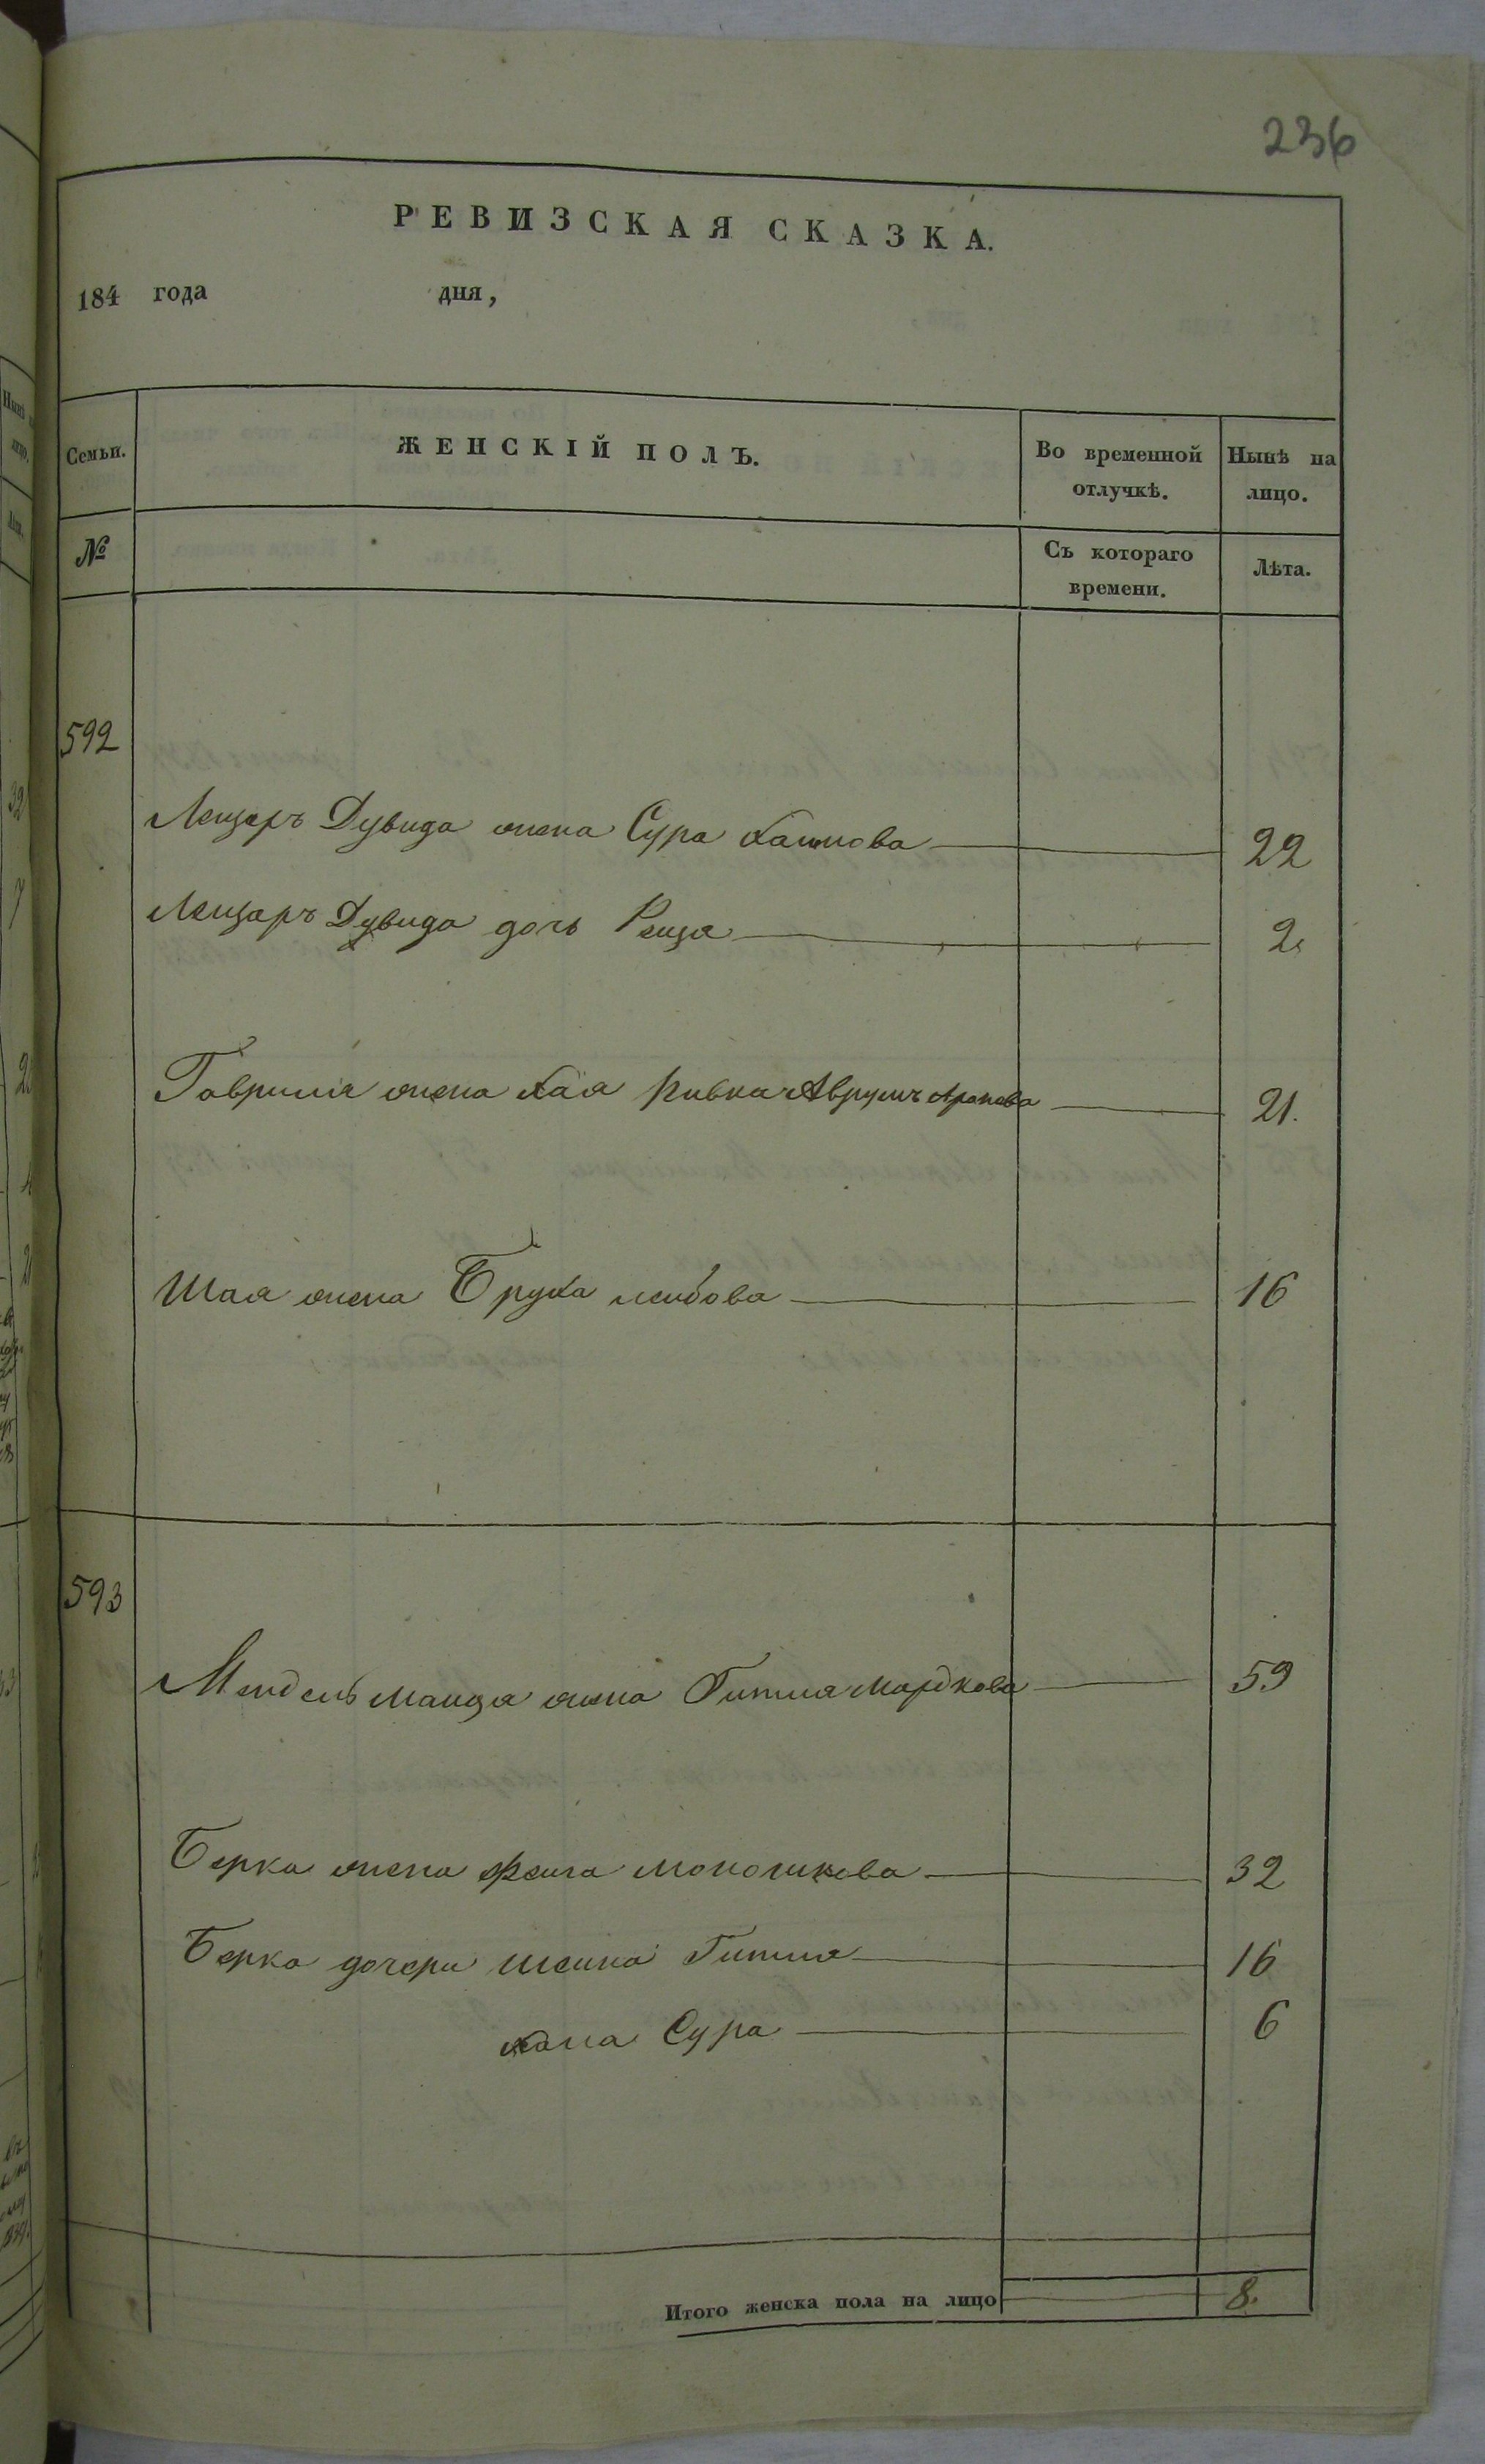 236
РЕВИЗСКАЯ СКАЗКА.
184 года дня,
Семьи. ЖЕНСКІЙ ПОЛЪ. Во временной отлучкѣ. Нынѣ на лицо.
№ Съ котораго времени. Лѣта.
592
Лейзеръ Дувида жена Сура Хаимова 22
Лейзеръ Дувида дочь Рейза 2
Гавриила жена Хая Ривка Аврумъ Аронова 21.
Шая жена Бруха Лейбова 16
593
Мендель Манца жена Гитля Мордкова 59
Берка жена Фейга Моношкова 32
Берка дочери Шейна Гитля 16
Хана Сура 6
Итого женска пола на лицо 8.